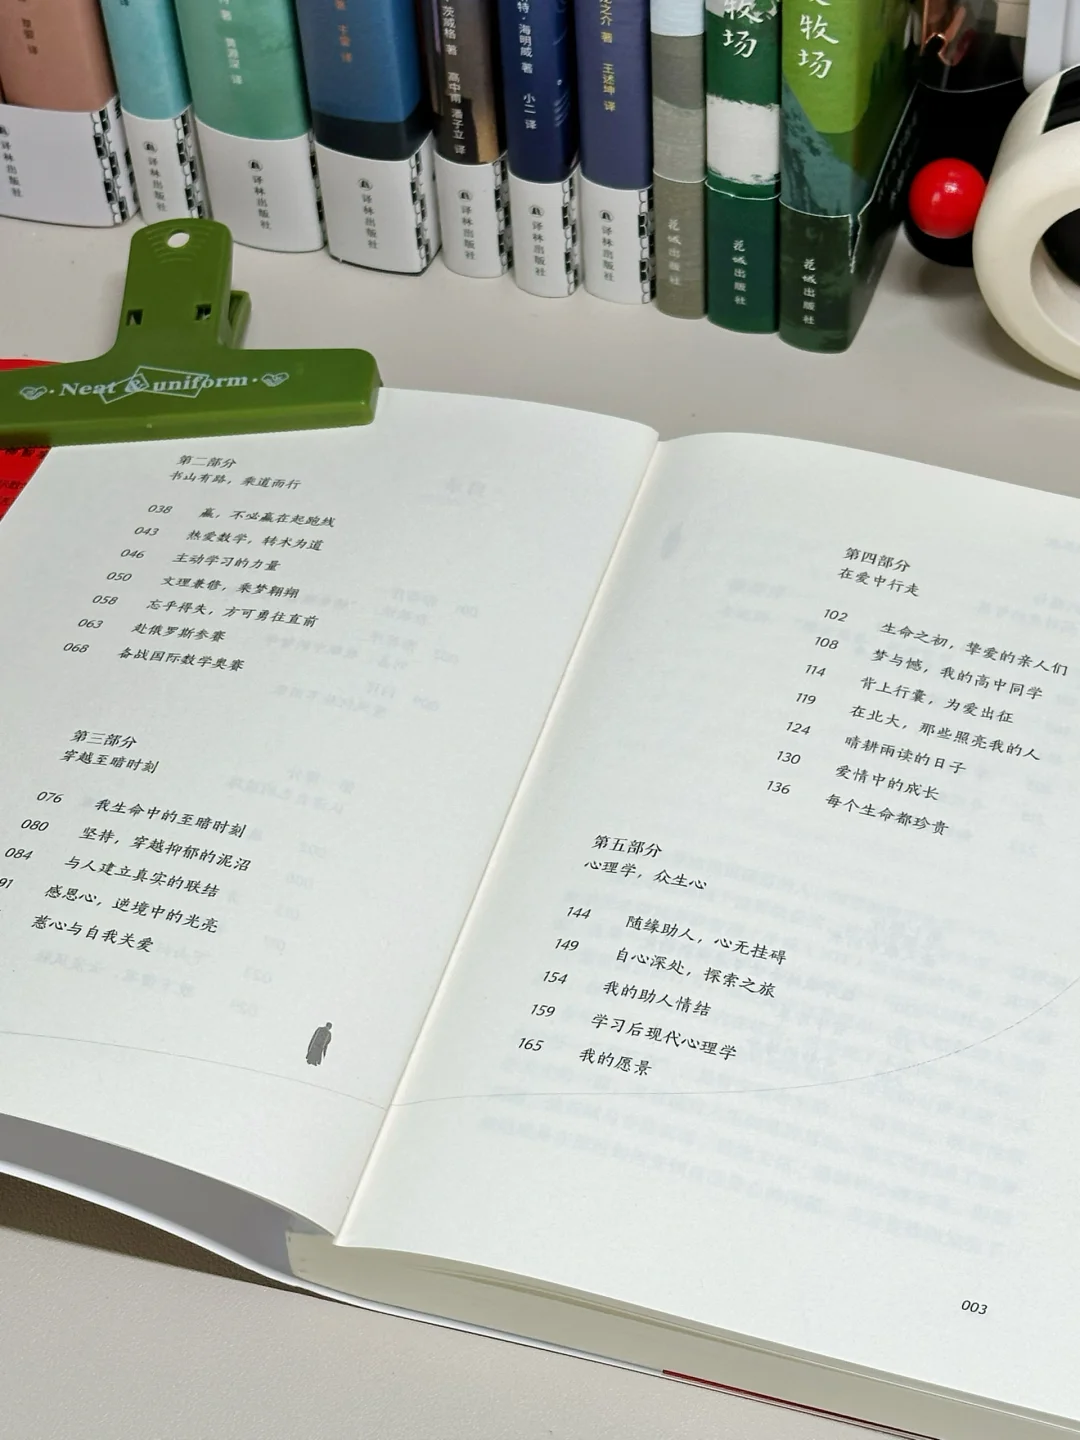 译
译林出版社
译
译林出版社
著
黄源深 译
译林出版社
译林出版社
茨威格 著
高中甫 潘子立 译
译林出版社
特·海明威 著
小二 译
译林出版社
之介 著
王述坤 译
译林出版社
花城出版社
牧场
花城出版社
牧场
花城出版社
Neat & uniform
第二部分
书山有路，乘道而行
038 赢，不必赢在起跑线
043 热爱数学，转术为道
046 主动学习的力量
050 文理兼修，乘梦翱翔
058 忘乎得失，方可勇往直前
063 赴俄罗斯参赛
068 备战国际数学奥赛
第三部分
穿越至暗时刻
076 我生命中的至暗时刻
080 坚持，穿越抑郁的泥沼
084 与人建立真实的联结
91 感恩心，逆境中的光亮
慈心与自我关爱
第四部分
在爱中行走
102 生命之初，挚爱的亲人们
108 梦与憾，我的高中同学
114 背上行囊，为爱出征
119 在北大，那些照亮我的人
124 晴耕雨读的日子
130 爱情中的成长
136 每个生命都珍贵
第五部分
心理学，众生心
144 随缘助人，心无挂碍
149 自心深处，探索之旅
154 我的助人情结
159 学习后现代心理学
165 我的愿景
003